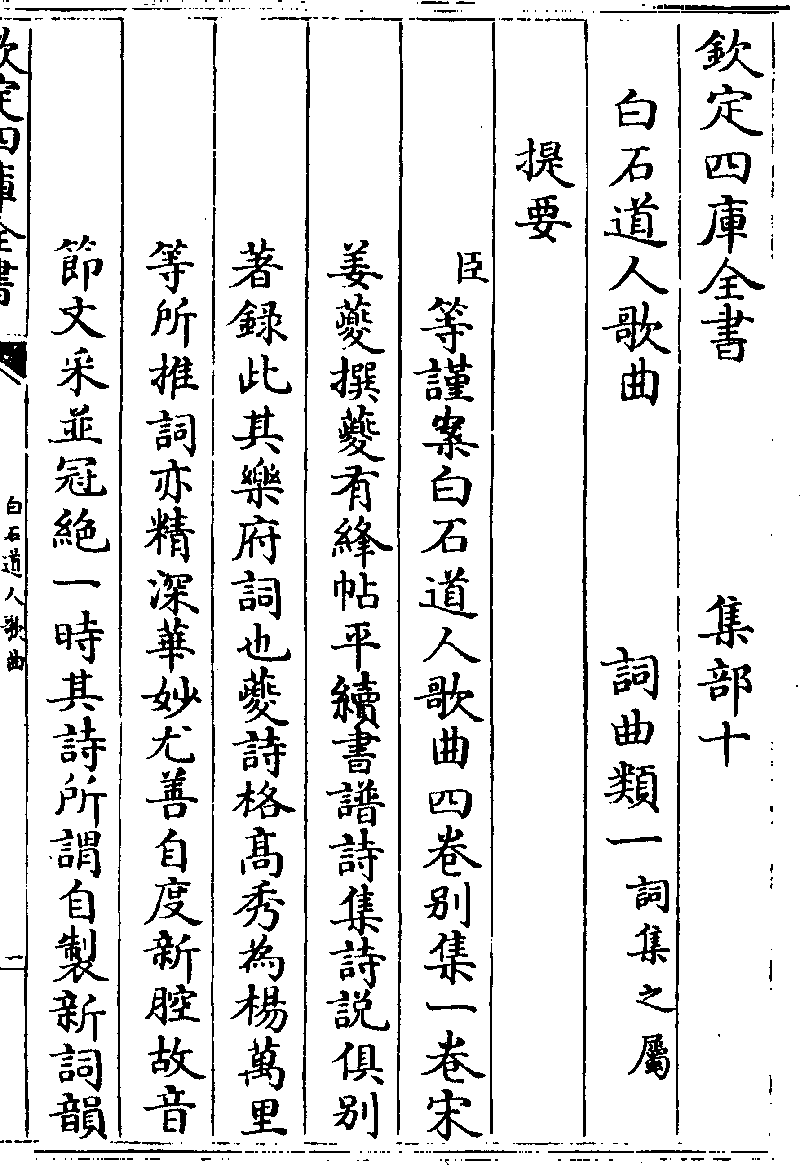 欽定四庫全書　集部十
白石道人歌曲　詞曲類一詞集之屬
提要
臣等謹案白石道人歌曲四卷别集一卷宋
姜夔撰夔有絳帖平續書譜詩集詩説俱别
著録此其樂府詞也夔詩格髙秀為楊萬里
等所推詞亦精深華妙尤善自度新腔故音
節文采並冠絶一時其詩所謂自製新詞韻
欽定四庫全書
白石道人歌曲
一